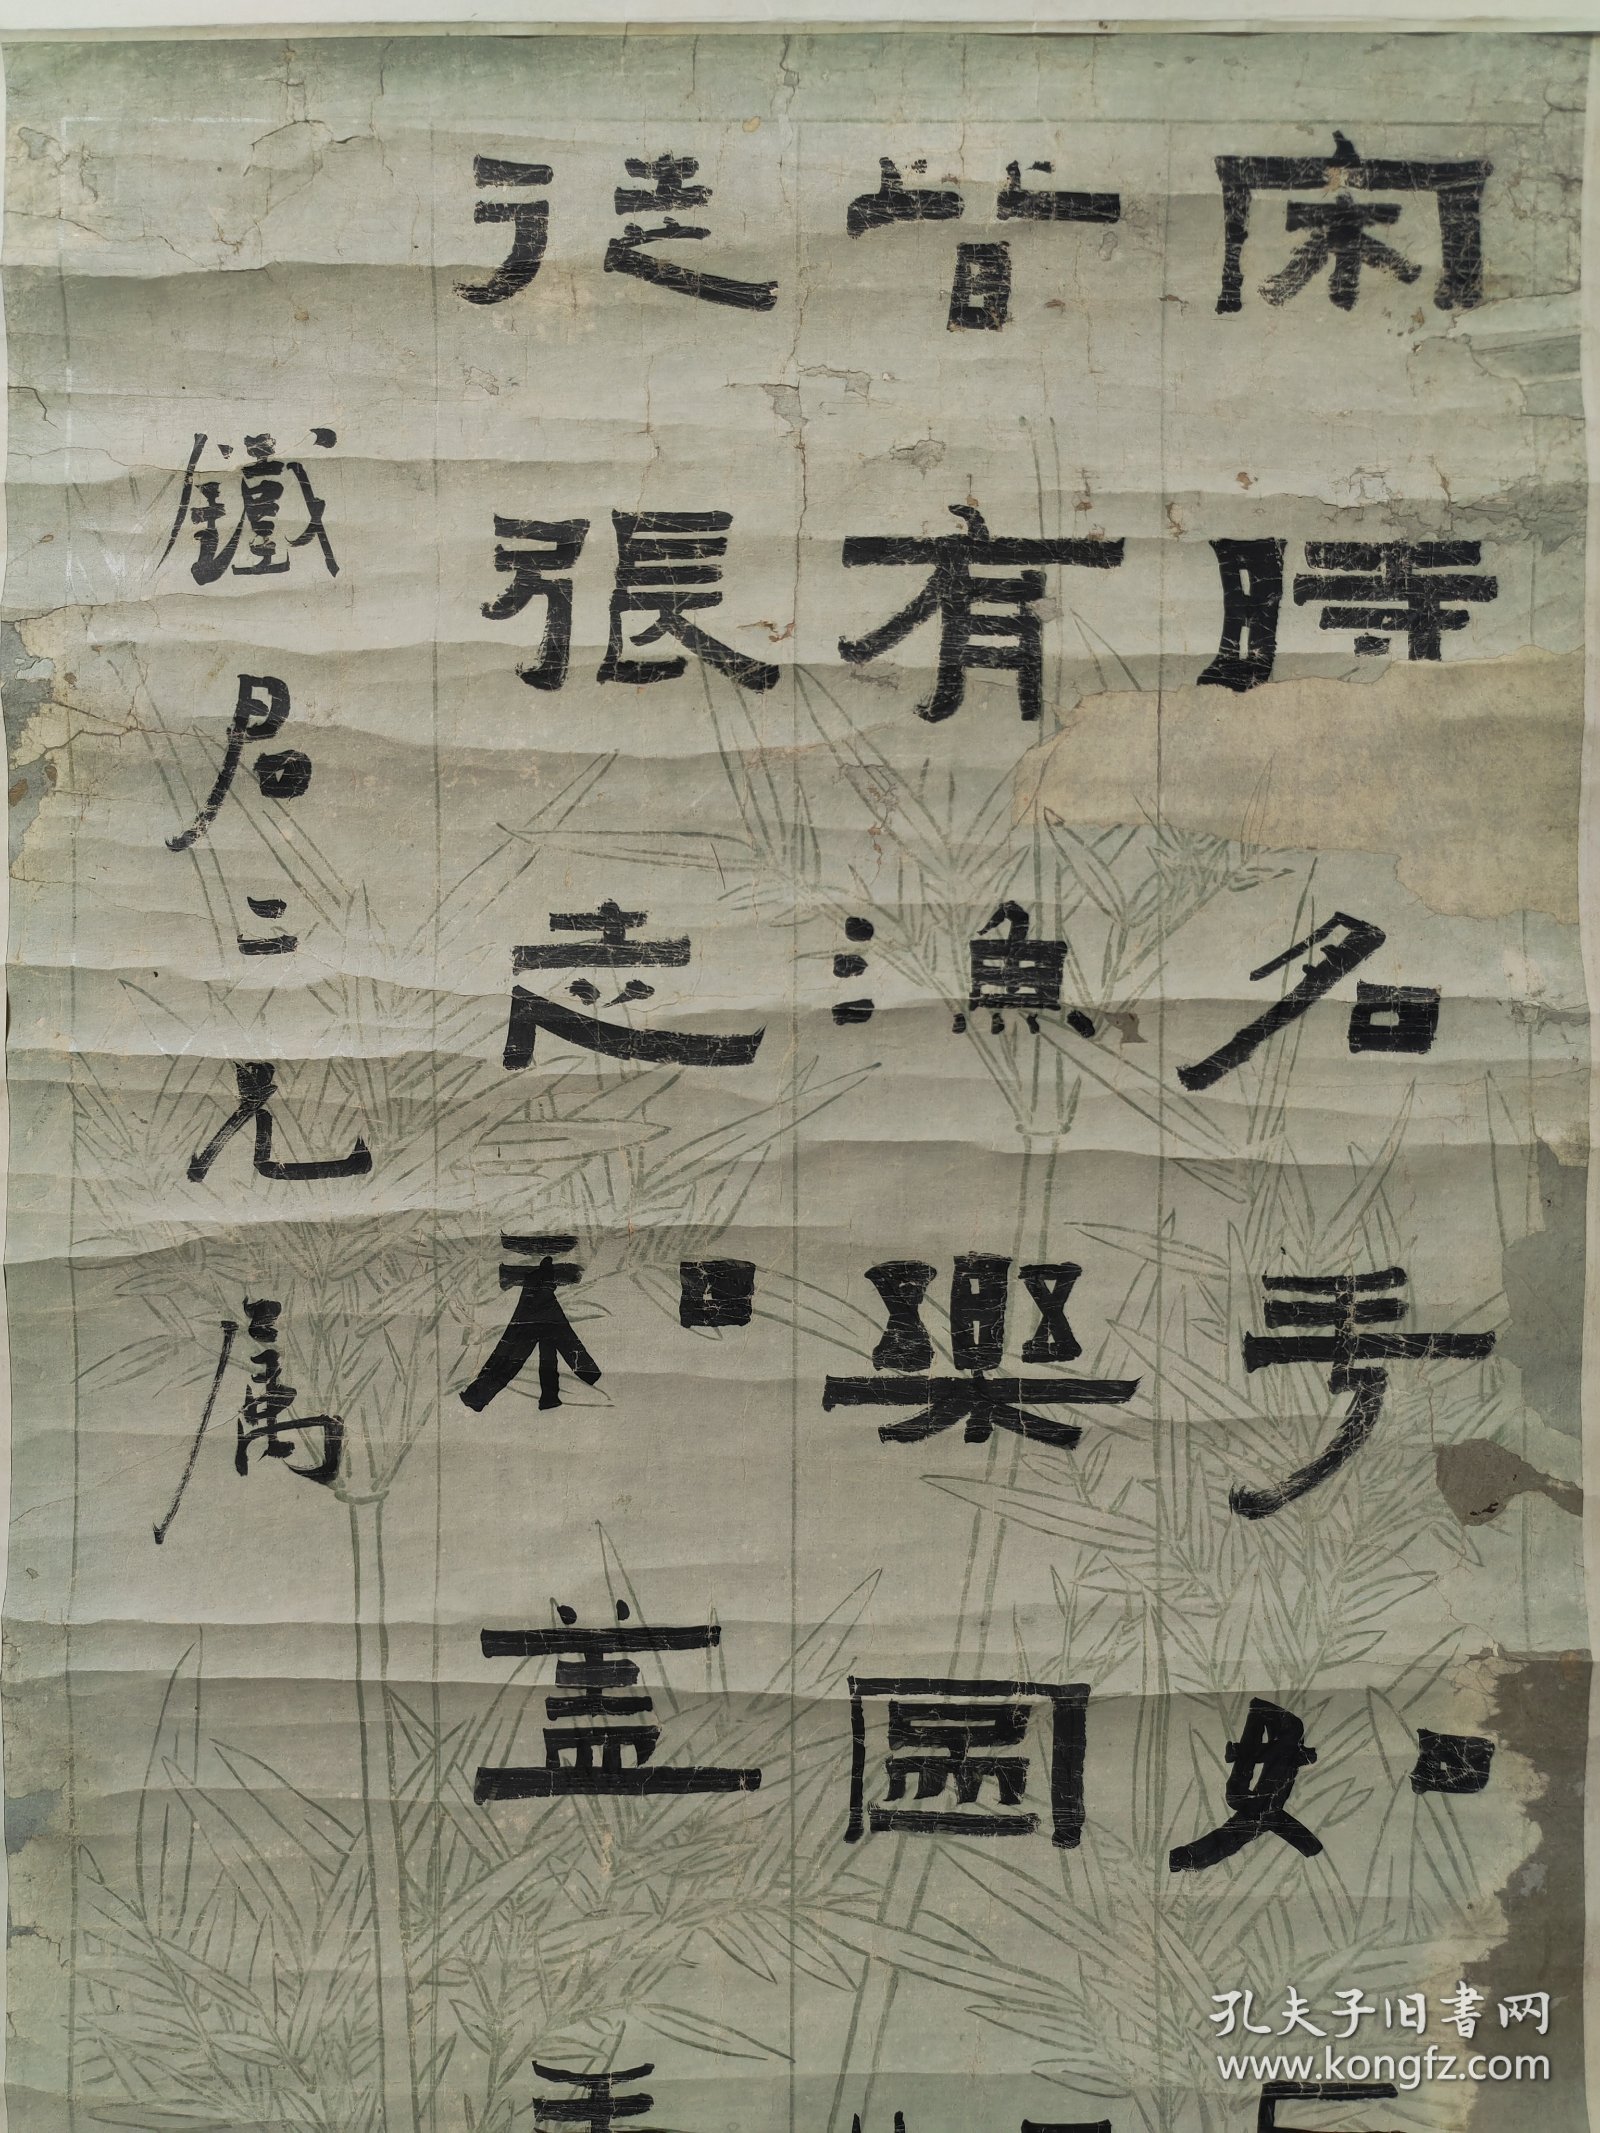 閑時名手如
昔有漁樂圖
從張志和盖
鐵君二兄属
孔夫子旧书网
www.kongfz.com